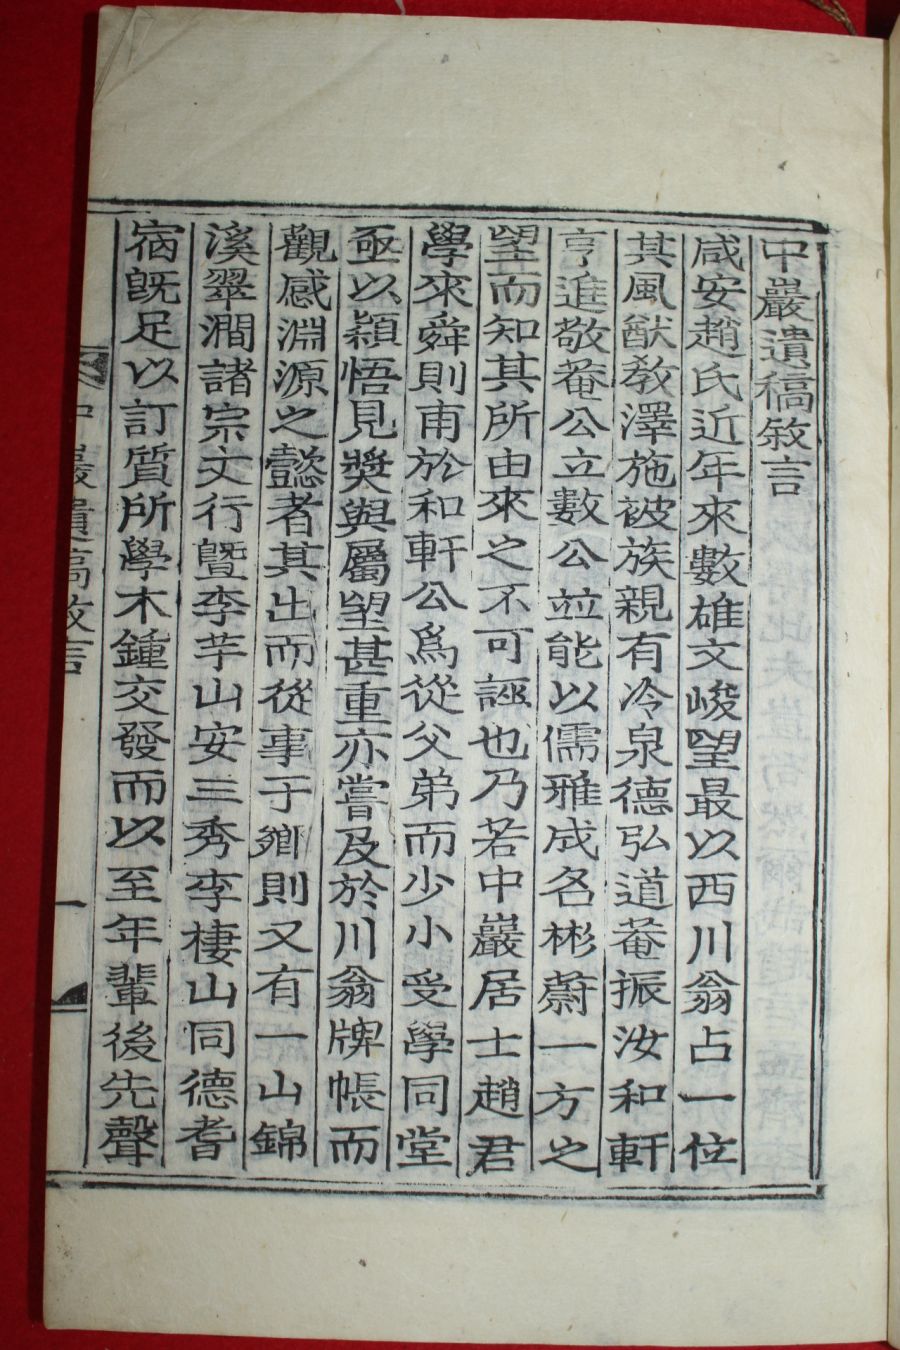 中巖遺稿敘言
咸安趙氏近年來數雄文峻望最以西川翁占一位
其風猷教澤施被族親有冷泉德弘道菴振汝和軒
亨進敬菴公立數公並能以儒雅成名彬蔚一方之
望而知其所由來之不可誣也乃若中巖居士趙君
學來舜則甫於和軒公爲從父弟而少小受學同堂
亟以穎悟見奬與屬望甚重亦嘗及於川翁牌帳而
觀感淵源之懿者其出而從事于鄕則又有一山錦
溪翠澗諸宗文行曁李芋山安三秀李棲山同德耆
宿旣足以訂質所學木鍾交發而以至年輩後先聲
中巖遺稿敘言
一